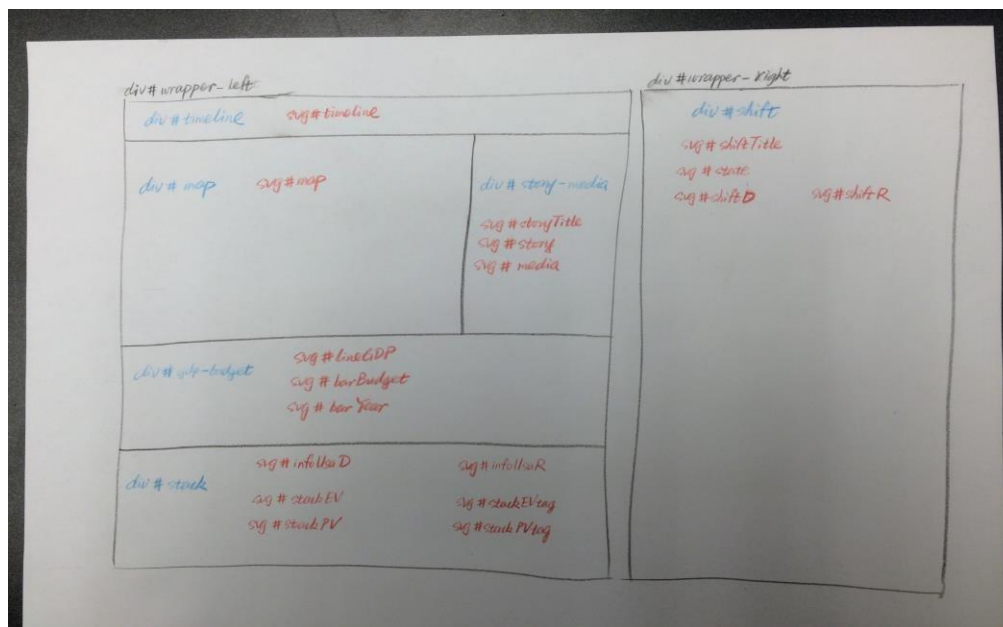 div#wrapper-left
div #timeline svg#timeline
div # map svg#map
div # story-media
svg #storyTitle
svg # story
svg # media
div # gdp-budget
svg # lineGDP
svg # barBudget
svg # bar Year
div # stack
svg #infoUsaD svg #infoUsaR
svg # stackEV svg #stackEVtag
svg #stackPV svg #stackPVtag
div #wrapper-right
div #shift
svg # shiftTitle
svg # state
svg #shiftD svg #shiftR